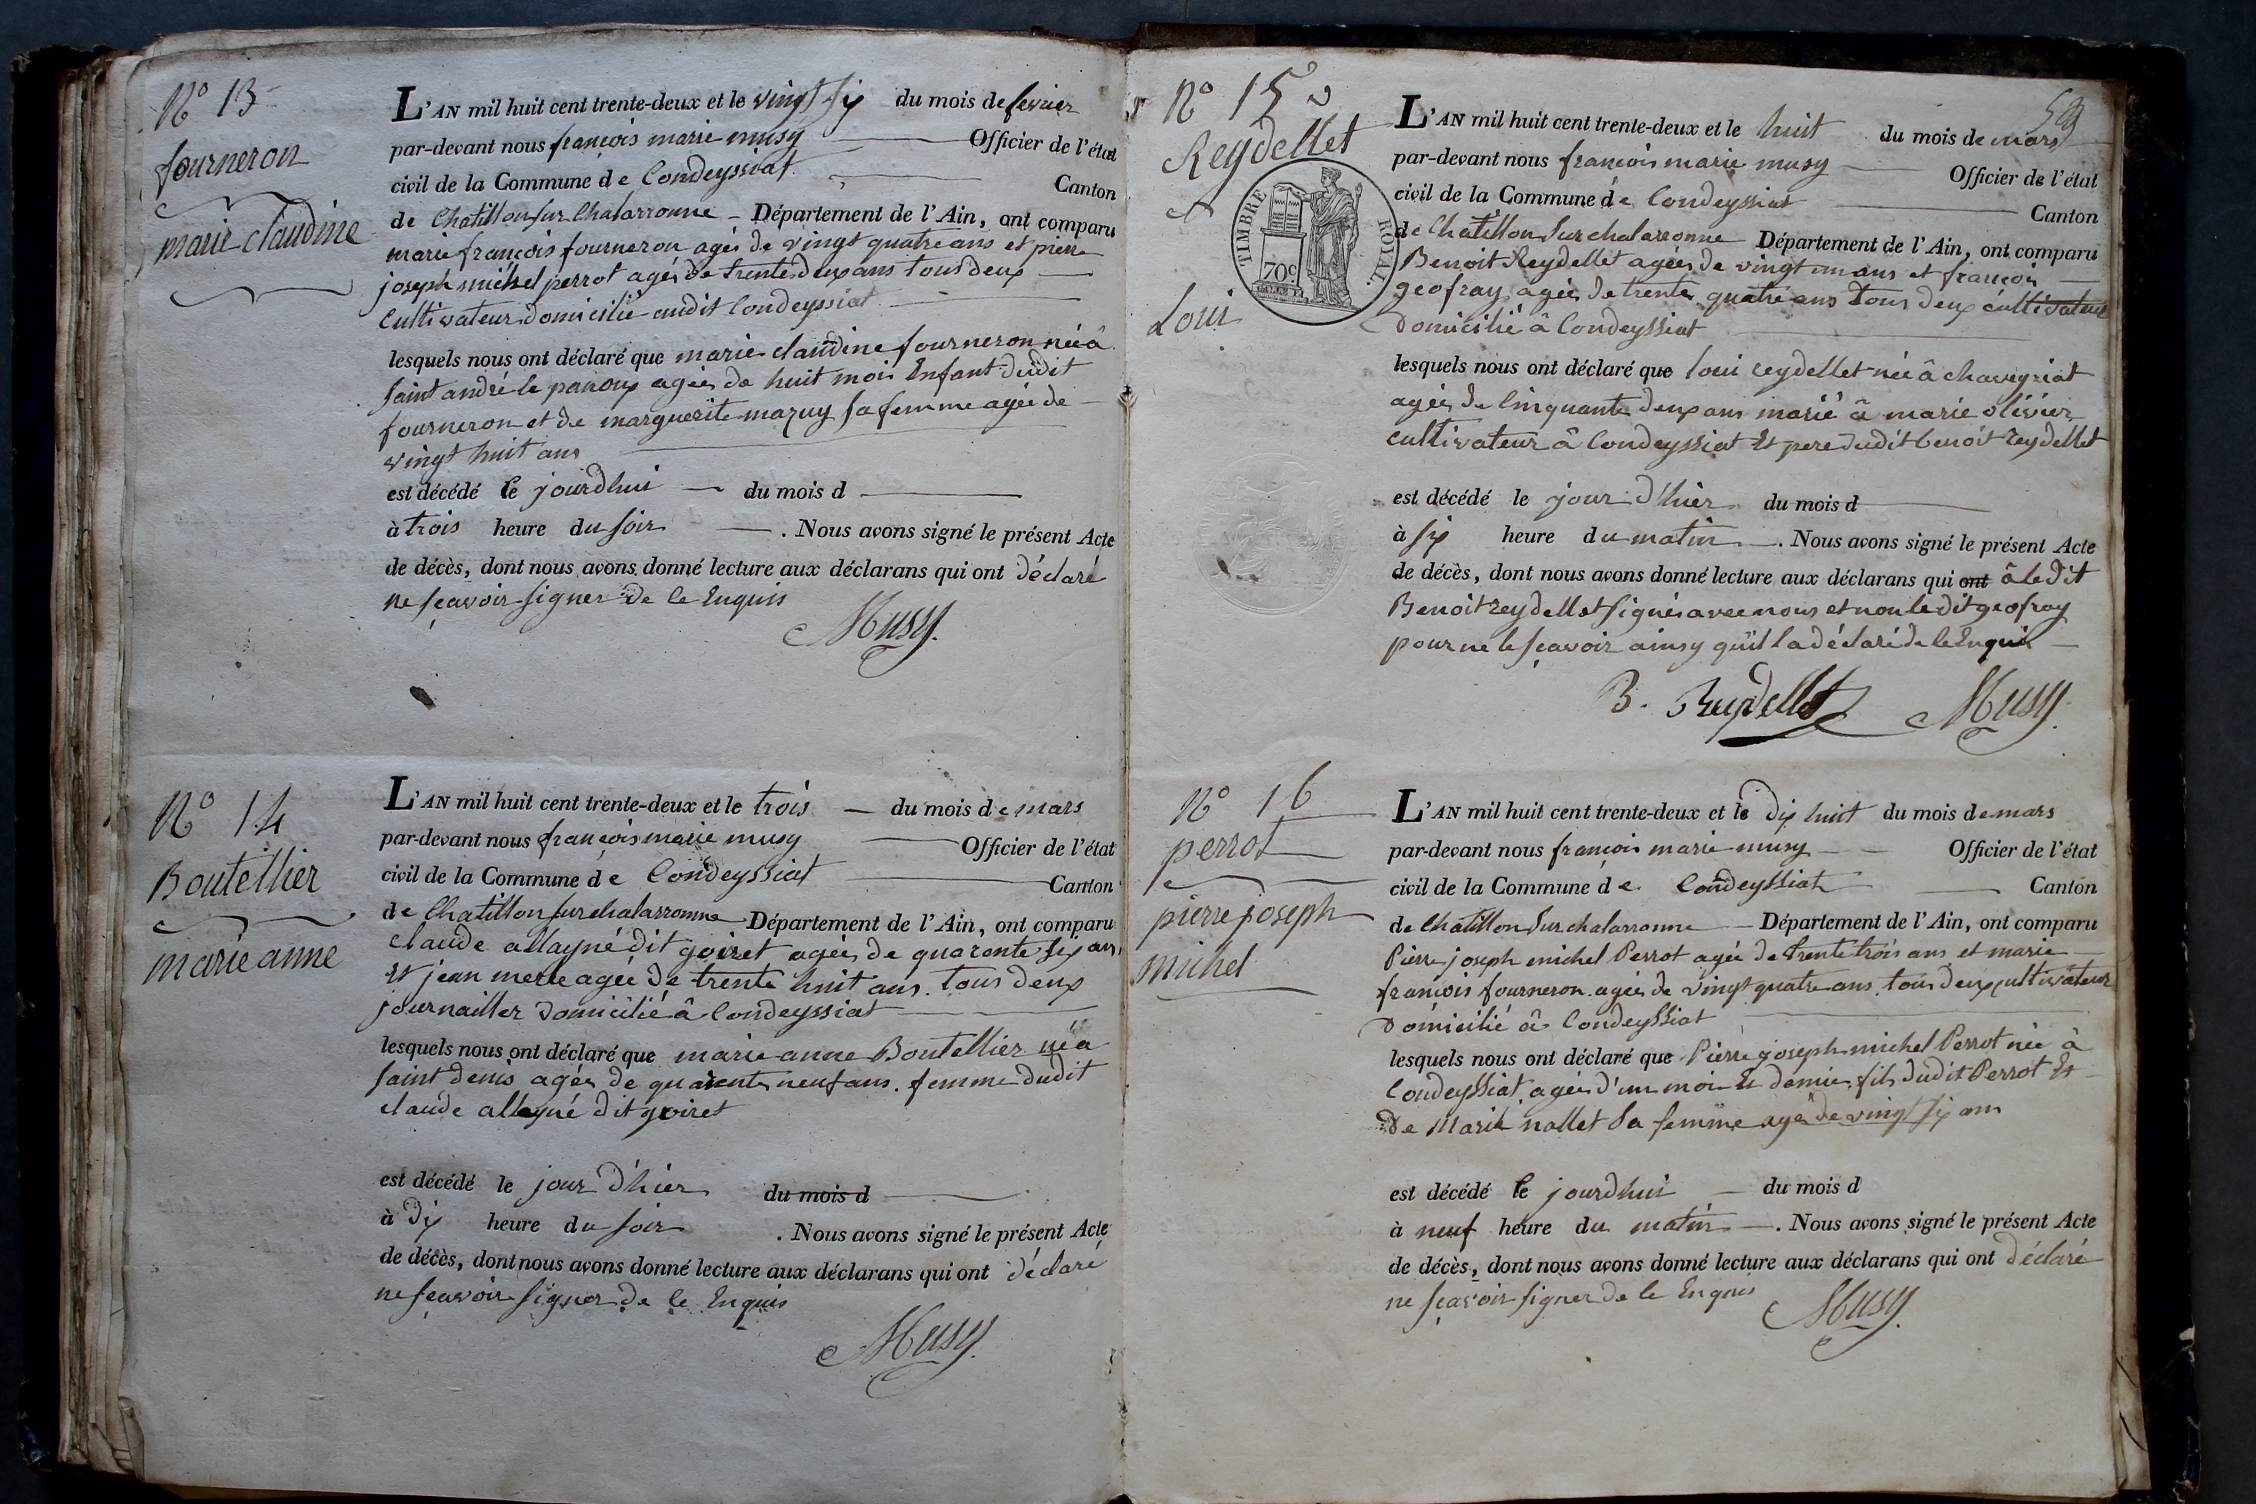 N° 13
fourneron
marie claudine
L'AN mil huit cent trente-deux et le vingt six du mois de fevrier
par-devant nous françois marie musy Officier de l'état
civil de la Commune de Condeyssiat Canton
de Chatillon sur Chalaronne Département de l'Ain, ont comparu
marie françois fourneron agés de vingt quatre ans et pierre
joseph michel perrot agés de trente deux ans tous deux
cultivateur domicilié audit Condeyssiat
lesquels nous ont déclaré que marie claudine fourneron née â
saint andré le panoux agées de huit mois Enfant dudit
fourneron et de marguerite mazuy sa femme agée de
vingt huit ans
est décédé le jourdhui du mois d
à trois heure du soir . Nous avons signé le présent Acte
de décès, dont nous avons donné lecture aux déclarans qui ont déclaré
ne sçavoir signer de ce Enquis
Musy
N° 14
Boutellier
marie anne
L'AN mil huit cent trente-deux et le trois du mois de mars
par-devant nous françois marie musy Officier de l'état
civil de la Commune de Condeyssiat Canton
de Chatillon sur chalarronne Département de l'Ain, ont comparu
claude allayné dit goiret agées de quarente six ans
Et jean merle agée de trente huit ans tous deux
journailler domicilié â Condeyssiat
lesquels nous ont déclaré que marie anne Boutellier né a
saint denis agées de quarente neuf ans femme dudit
claude allayné dit goiret
est décédé le jour d'hier du mois d
à dix heure du soir . Nous avons signé le présent Acte
de décès, dont nous avons donné lecture aux déclarans qui ont déclaré
ne sçavoir signer de ce Enquis
Musy
N° 15
Reydellet
Loui
TIMBRE ROYAL
70c
59
L'AN mil huit cent trente-deux et le huit du mois de mars
par-devant nous francois marie musy Officier de l'état
civil de la Commune de Condeyssiat Canton
de Chatillon sur chalaronne Département de l'Ain, ont comparu
Benoit Reydellet agées de vingt un ans et françois
geofray agées de trente quatre ans tous deux cultivateur
domicilié â Condeyssiat
lesquels nous ont déclaré que loui reydellet née â chaveyriat
agées de Cinquante deux ans marié â marie olivier
cultivateur â Condeyssiat Et pere dudit benoit reydellet
est décédé le jour d'hier du mois d
à six heure du matin . Nous avons signé le présent Acte
de décès, dont nous avons donné lecture aux déclarans qui ont â ledit
Benoit reydellet signés avec nous et non le dit geofray
pour ne le sçavoir ainsy qu'il la déclaré de ce Enquis
B. Reydellet Musy
N° 16
perrot
pierre joseph
michel
L'AN mil huit cent trente-deux et le dix huit du mois de mars
par-devant nous francois marie musy Officier de l'état
civil de la Commune de Condeyssiat Canton
de Chatillon Sur chalaronne Département de l'Ain, ont comparu
Pierre joseph michel Perrot agée de trente trois ans et marie
francois fourneron agées de vingt quatre ans tous deux cultivateur
domicilié â Condeyssiat
lesquels nous ont déclaré que Pierre joseph michel Perrot née à
Condeyssiat agées d'un mois Et demie fils dudit Perrot Et
De Marie nallet Sa femme agé de vingt six ans
est décédé le jourdhui du mois d
à neuf heure du matin . Nous avons signé le présent Acte
de décès, dont nous avons donné lecture aux déclarans qui ont déclaré
ne sçavoir signer de ce Enquis
Musy